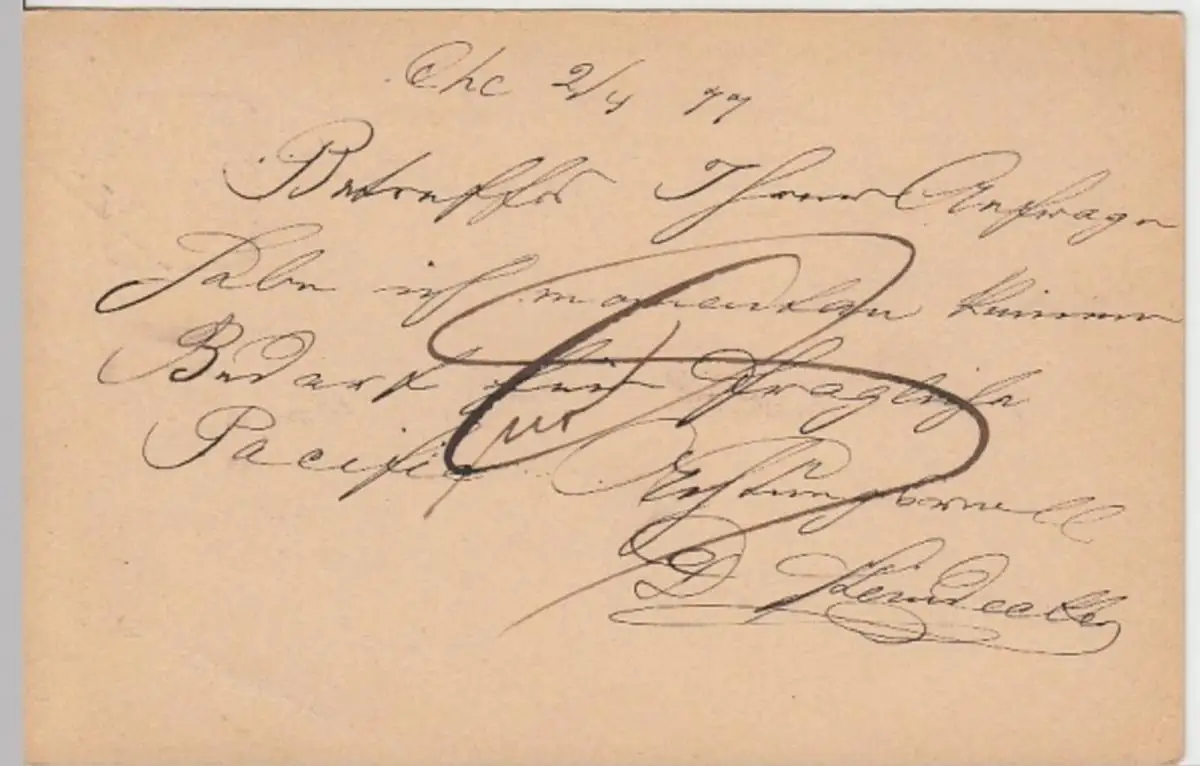 Chc 2/4 77
Betreffs Ihrer Anfrage
habe ich momentan keinen
Bedarf für fragliche
Pacific
Achtungsvoll
D